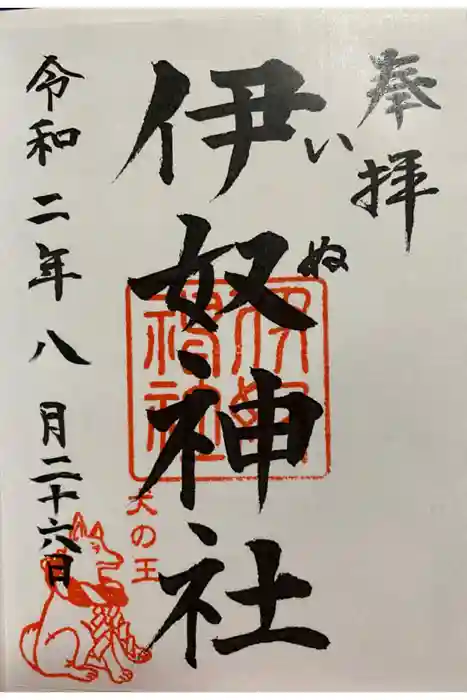 奉拝
伊奴神社
いぬ
伊奴
神社
犬の王
令和二年八月二十六日